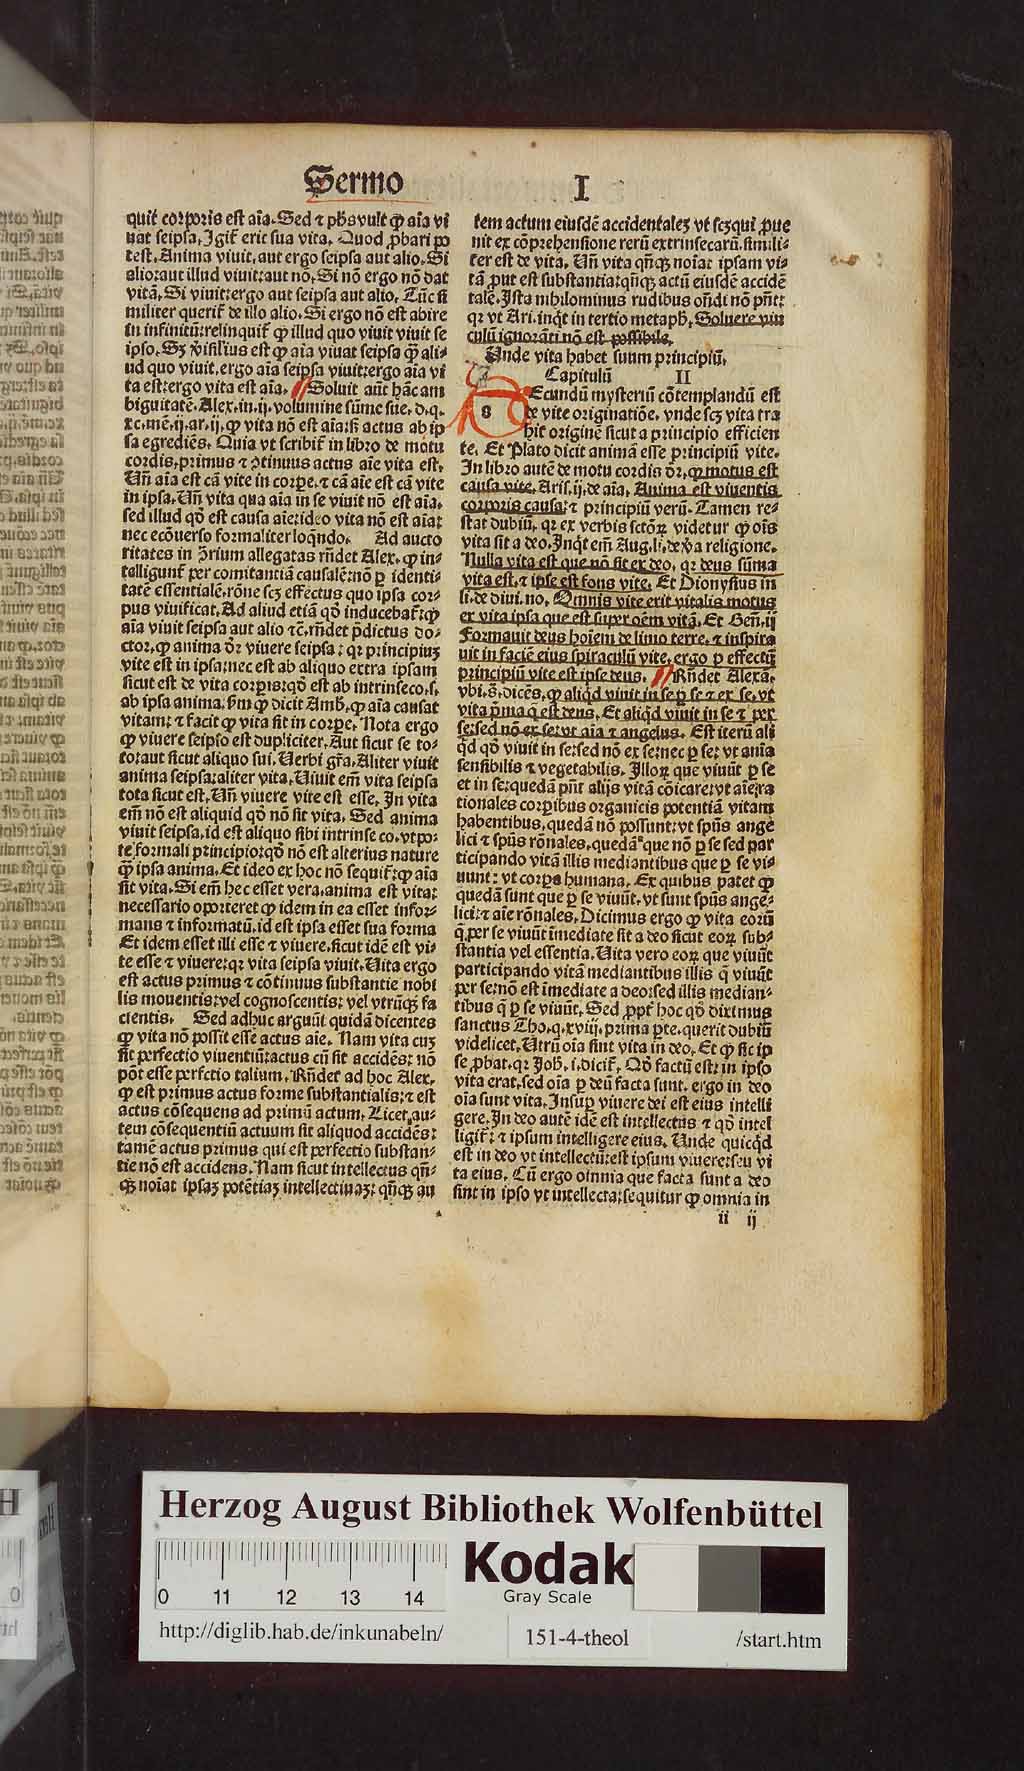 Sermo I
quit corporis est aīa. Sed ⁊ ph̄s vult ꝙ aīa vi
uat seipsa, Igit̄ erit sua vita. Quod ꝓbari po
test. Anima viuit, aut ergo seipsa aut alio. Si
alio: aut illud viuit: aut nō. Si nō ergo nō dat
vitā. Si viuit: ergo aut seipsa aut alio. Tūc si
militer querit̄ de illo alio. Si ergo nō est abire
in infinitū: relinquit̄ ꝙ illud quo viuit viuit se
ipso. Sꝫ v̓isili⁹ est ꝙ aīa viuat seipsa q̄ꝫ ali-
ud quo viuit. ergo aīa seipsa viuit: ergo aīa vi
ta est: ergo vita est aīa. Soluit aūt hāc am
biguitatē. Alex. in. ij. volumine sūme sue. d. q.
xc. mē. ij. ar. ij. ꝙ vita nō est aīa: sꝫ actus ab ip
sa egrediēs. Quia vt scribit̄ in libro de motu
cordis. primus ⁊ ꝯtinuus actus aīe vita est.
Uñ aīa est cā vite in corpe. ⁊ cā aīe est cā vite
in ipsa. Uñ vita qua aīa in se viuit nō est aīa.
sed illud qd̄ est causa aīe: ideo vita nō est aīa:
nec ecōuerso formaliter loq̄ndo. Ad aucto
ritates in ꝯ̓rium allegatas rñdet Alex. ꝙ in-
telligunt̄ per comitantiā causalē: nō ꝑ identi-
tatē essentialē. rōne scꝫ effectus quo ipsa cor-
pus viuificat. Ad aliud etiā qd̄ inducebat̄: ꝙ
aīa viuit seipsa aut alio ⁊c̄. rñdet p̄dictus do-
ctor. ꝙ anima d̓r viuere seipsa: qꝛ principiuꝫ
vite est in ipsa: nec est ab aliquo extra ipsam
sicut est de vita corpis: qd̄ est ab intrinseco. s.
ab ipsa anima. ẜm ꝙ dicit Amb̓. ꝙ aīa causat
vitam: ⁊ facit ꝙ vita sit in corpe. Nota ergo
ꝙ viuere seipso est dupliciter. Aut sicut se to-
to: aut sicut aliquo sui. Uerbi gr̄a. Aliter viuit
anima seipsa: aliter vita. Uiuit em̄ vita seipsa
tota sicut est. Uñ viuere vite est esse. In vita
em̄ nō est aliquid qd̄ nō sit vita. Sed anima
viuit seipsa. id est aliquo sibi intrinse co. vt po-
te formali principio: qd̄ nō est alterius nature
q̄ꝫ ipsa anima. Et ideo ex hoc nō sequit̄: ꝙ aīa
sit vita. Si em̄ hec esset vera. anima est vita:
necessario oporteret ꝙ idem in ea esset infor-
mans ⁊ informatū. id est ipsa esset sua forma
Et idem esset illi esse ⁊ viuere. sicut idē est vi-
te esse ⁊ viuere: qꝛ vita seipsa viuit. Uita ergo
est actus primus ⁊ cōtinuus substantie nobi
lis mouentis: vel cognoscentis: vel vtrūqꝫ fa
cientis. Sed adhuc arguūt quidā dicentes
ꝙ vita nō possit esse actus aīe. Nam vita cuꝫ
sit perfectio viuentiū: actus cū sit accidēs: nō
pōt esse perfctio talium. Rñdet ad hoc Alex.
ꝙ est primus actus forme substantialis: ⁊ est
actus cōsequens ad primū actum. Licet au-
tem cōsequentiū actuum sit aliquod accidēs:
tamē actus primus qui est perfectio substan-
tie nō est accidens. Nam sicut intellectus qñ-
qꝫ noīat ipsaꝫ potētiaꝫ intellectiuaꝫ: qñqꝫ au
tem actum eiusdē accidentaleꝫ vt scꝫ qui ꝓue
nit ex cōprehensione rerū extrinsecarū. simili-
ter est de vita. Uñ vita qñqꝫ noīat ipsam vi-
tā ꝓut est substantia: qñqꝫ actū eiusdē accidē
talē. Ista nihilominus rudibus oñdi nō pn̄t:
qꝛ vt Ari. inq̓t in tertio metaph̓. Soluere vin
culū ignorāti nō est possibile.
Unde vita habet suum principiū.
Capitulū II
Secundū mysteriū cōtemplandū est
de vite originatiōe. vnde scꝫ vita tra
hit originē sicut a principio efficien
te. Et Plato dicit animā esse principiū vite.
In libro autē de motu cordis d̓r. ꝙ motus est
causa vite. Aris. ij. de aīa. Anima est viuentis
corporis causa: ⁊ principiū verū. Tamen re-
stat dubiū. qꝛ ex verbis sctōꝝ videtur ꝙ oīs
vita sit a deo. Inq̓t em̄ Aug. li. de v̓a religione.
Nulla vita est que nō sit ex deo. qꝛ deus sūma
vita est. ⁊ ipse est fons vite. Et Dionysius in
li. de diui. no. Omnis vite erit vitalis motus
ex vita ipsa que est super oēm vitā. Et Geñ. ij
Formauit deus hoīem de limo terre. ⁊ inspira
uit in faciē eius spiraculū vite. ergo ꝑ effectū
principiū vite est ipse deus. Rñdet Alexā.
vbi. s̄. dicēs. ꝙ aliq̓d viuit in se ꝑ se ⁊ ex se. vt
vita p̄ma q̄ est deus. Et aliq̓d viuit in se ⁊ per
se: sed nō ex se: vt aīa ⁊ angelus. Est iterū ali
q̓d qd̄ viuit in se: sed nō ex se: nec ꝑ se: vt anīa
sensibilis ⁊ vegetabilis. Illoꝝ que viuūt ꝑ se
et in se: quedā pn̄t alijs vitā cōicare: vt aīe: ra
tionales corpibus organicis potentiā vitam
habentibus. quedā nō possunt: vt spūs ange
lici ⁊ spūs rōnales. quedā que nō ꝑ se sed par
ticipando vitā illis mediantibus que ꝑ se vi-
uunt: vt corpa humana. Ex quibus patet ꝙ
quedā sunt que ꝑ se viuūt. vt sunt spūs ange-
lici: ⁊ aīe rōnales. Dicimus ergo ꝙ vita eorū
q̄ per se viuūt īmediate sit a deo sicut eoꝝ sub-
stantia vel essentia. Uita vero eoꝝ que viuūt
participando vitā mediantibus illis q̄ viuūt
per se: nō est īmediate a deo: sed illis median-
tibus q̄ ꝑ se viuūt. Sed ꝓpt̓ hoc qd̄ diximus
sanctus Tho. q. xviij. prima p̄te. querit dubiū
videlicet. Utrū oīa sint vita in deo. Et ꝙ sic ip
se ꝓbat. qꝛ Joh̄. i. dicit̄. Qd̄ factū est: in ipso
vita erat. sed oīa ꝑ deū facta sunt. ergo in deo
oīa sunt vita. Insuꝑ viuere dei est eius intelli
gere. In deo autē idē est intellectus ⁊ qd̄ intel
ligit̄: ⁊ ipsum intelligere eius. Unde quicq̓d
est in deo vt intellectū: est ipsum viuere: seu vi
ta eius. Cū ergo oīnnia que facta sunt a deo
sint in ipso vt intellecta: sequitur ꝙ omnia in
ii ij
Herzog August Bibliothek Wolfenbüttel
Kodak
Gray Scale
0 11 12 13 14
http://diglib.hab.de/inkunabeln/ 151-4-theol /start.htm